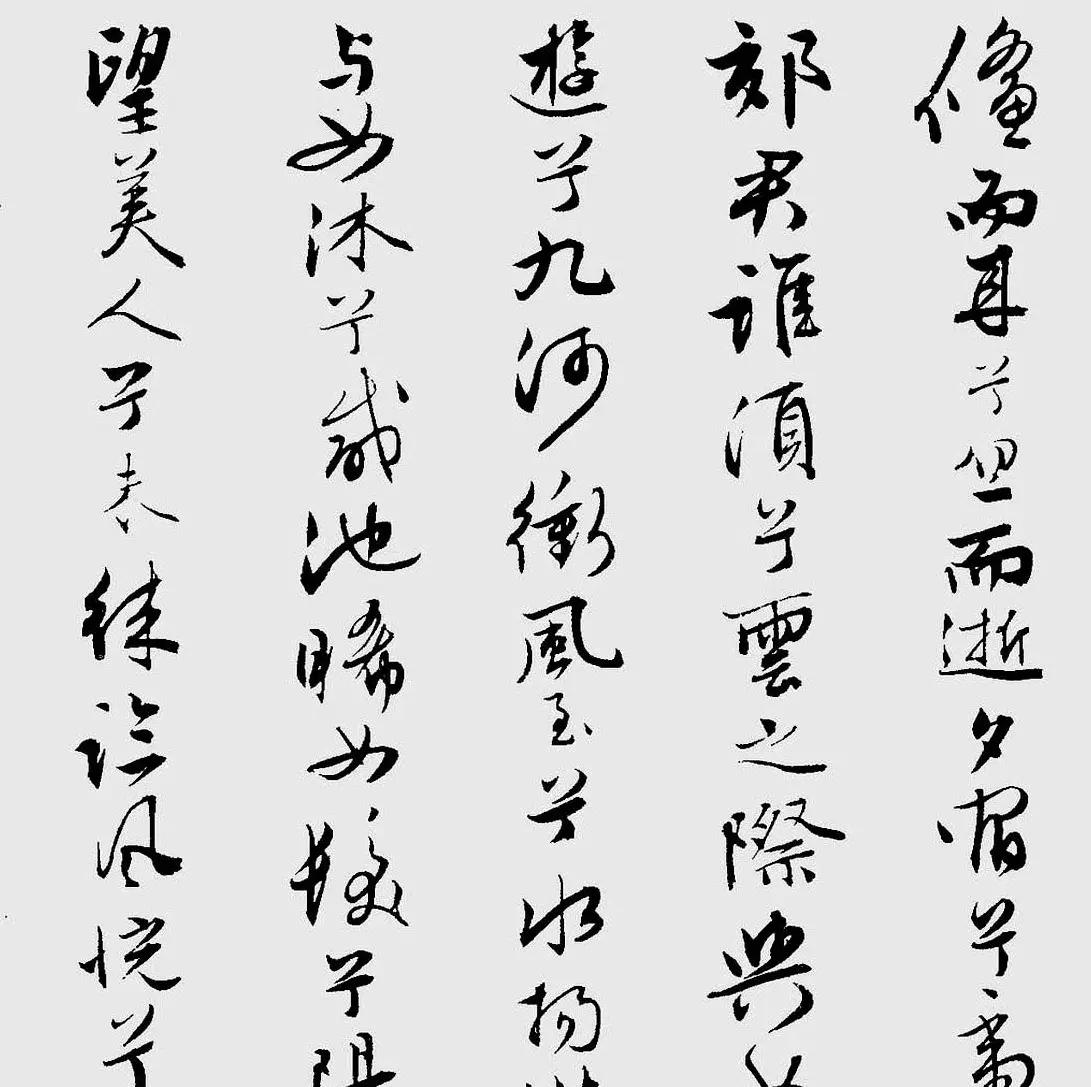 儵而來兮忽而逝夕宿兮帝
郊君誰須兮雲之際與女
遊兮九河衝風至兮水揚
与女沐兮咸池晞女髮兮
望美人兮未徠臨風怳兮